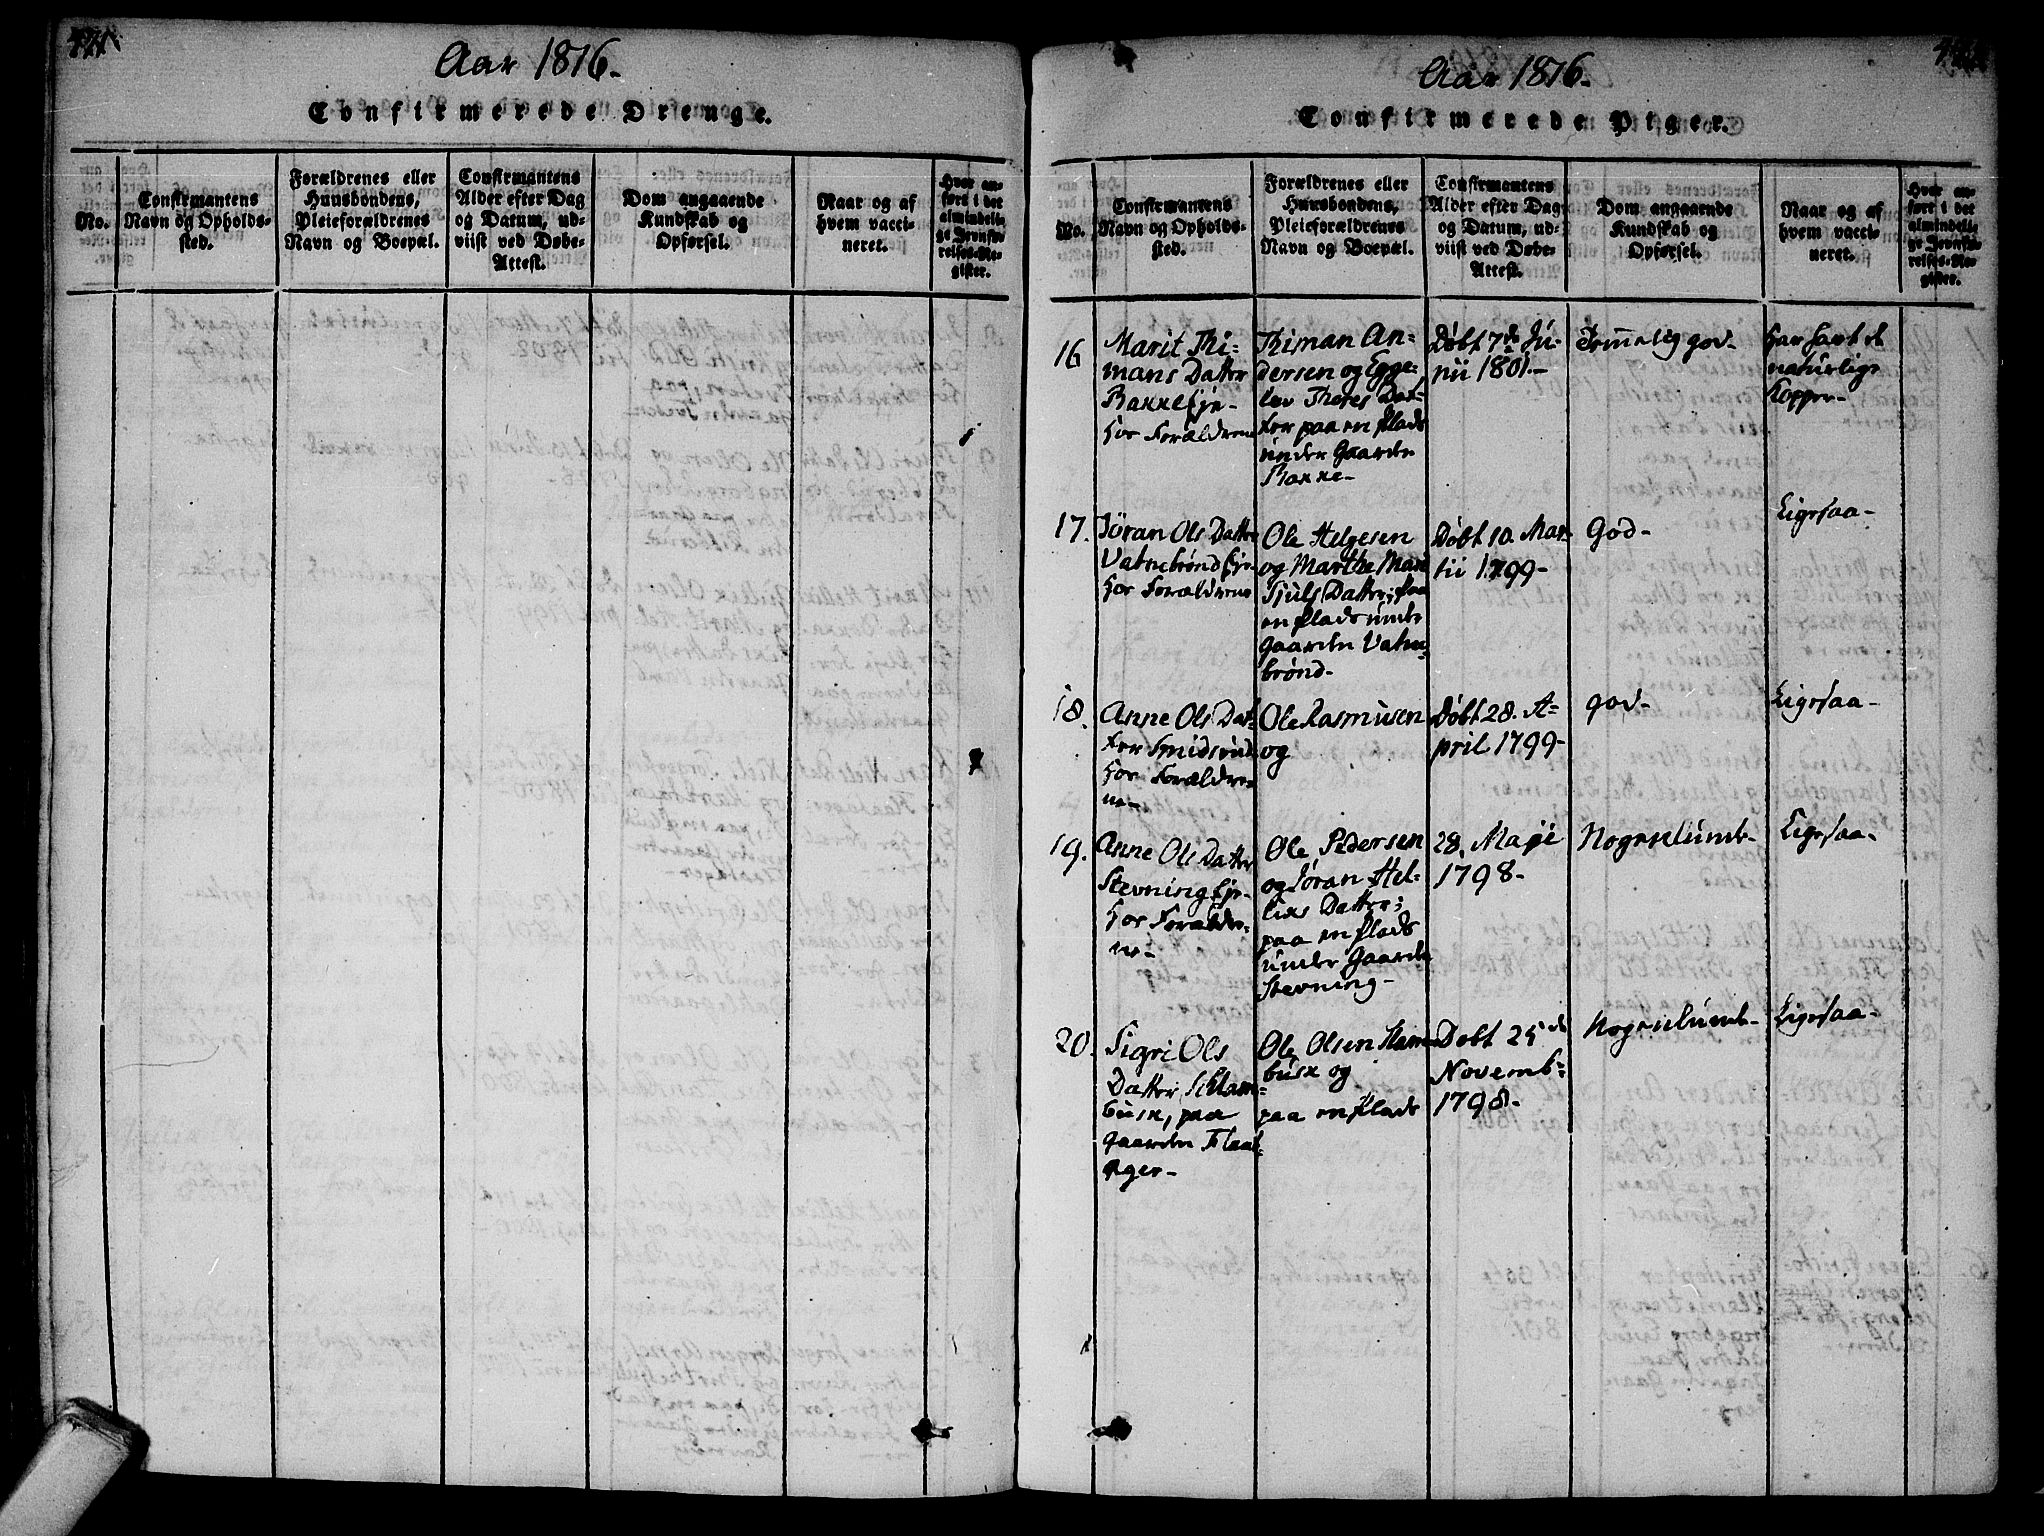 471.
Aar 1816.
Confirmerede Drenge.
No.
Confirmantens
Navn og Opholds-
sted.
Forældrenes eller
Huusbondens,
Pleieforældrenes
Navn og Boepæl.
Confirmantens
Alder efter Dag
og Datum, ud-
viist ved Døbe-
Attest.
Dom angaaende
Kundskab og
Opførsel.
Naar og af
hvem vacci-
neret.
Hvor an-
ført i det
almindeli-
ge Jevnfø-
relses-Re-
gister.
Aar 1816.
Confirmerede Piger.
No.
Confirmantens
Navn og Opholds-
sted.
Forældrenes eller
Huusbondens,
Pleieforældrenes
Navn og Boepæl.
Confirmantens
Alder efter Dag
og Datum, ud-
viist ved Døbe-
Attest.
Dom angaaende
Kundskab og
Opførsel.
Naar og af
hvem vacci-
neret.
Hvor an-
ført i det
almindeli-
ge Jevnfø-
relses-Re-
gister.
16
Marit Thi-
mans Datter
Bakke Eje-
hos Forældrene
Thiman An-
dersen og Egge-
lev Thores Dat-
ter paa en Plads
under Gaarden
Bakke-
Døbt 7de Ju-
nii 1801.-
Temmelig god-
Har havt de
naturlige
Kopper-
17.
Jöran Ols Datter
Vatnebrönd Eje-
hos Forældrene
Ole Helgesen
og Marthe Mari
Tjuls Datter; paa
en Plads under
Gaarden Vatne-
brönd-
Døbt 10. Mar-
tii 1799-
God-
Ligesaa-
18.
Anne Ols Dat-
ter Smidsrud
hos Forældre-
ne-
Ole Rasmusen
og
Døbt 28. A-
pril 1799-
god-
Ligesaa-
19.
Anne Ols Datter
Stevning Eje-
hos Forældre-
ne-
Ole Pedersen
og Jöran Hel-
liks Datter;
paa en Plads
under Gaarden
Stevning-
28. Maji
1798-
Nogenlunde-
Ligesaa-
20.
Sigri Ols
Datter
busk, paa
Gaarden Flaat-
ager-
Ole Olsen
busk og
paa en Plads
Døbt 25de
Novemb-
1798-
Nogenlunde-
Ligesaa-